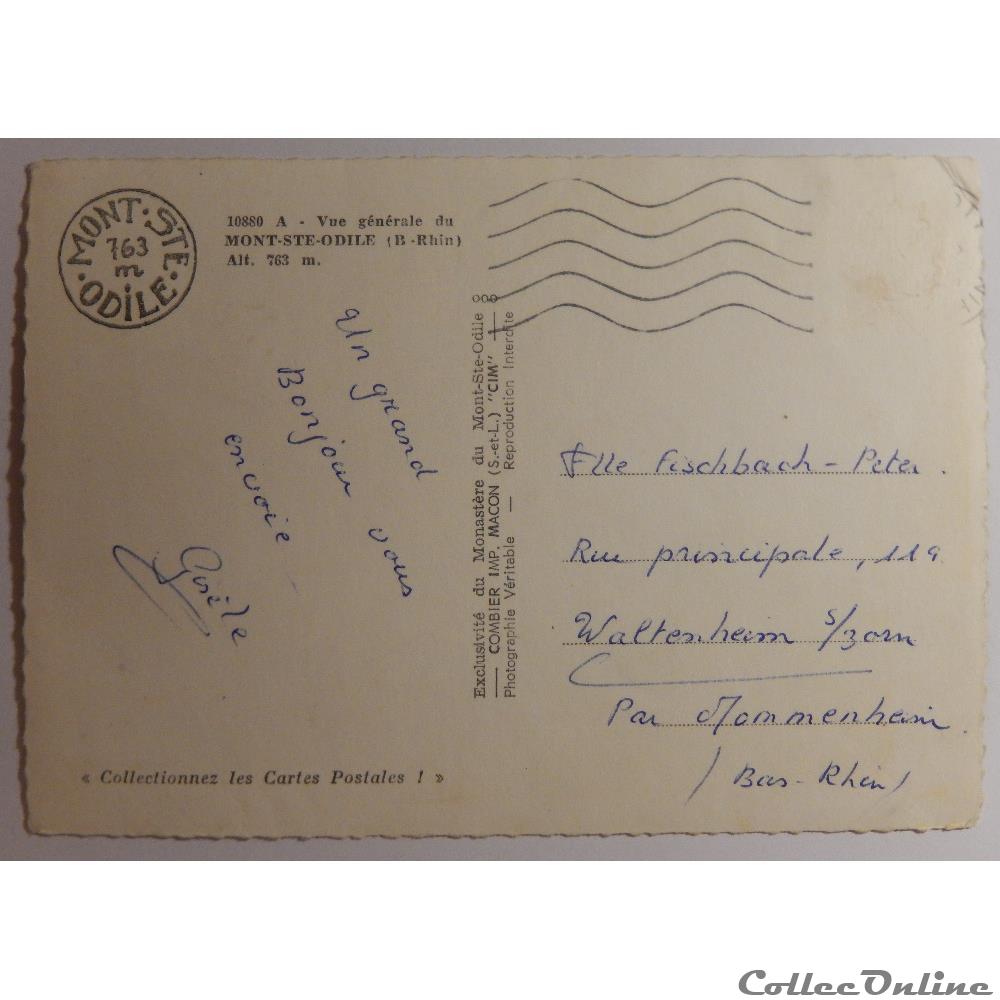 MONT·STE·ODILE·
763
m
10880 A - Vue générale du
MONT-STE-ODILE (B.-Rhin)
Alt. 763 m.
Un grand
Bonjour vous
envoie
Gisèle
« Collectionnez les Cartes Postales ! »
Exclusivité du Monastère du Mont-Ste-Odile
COMBIER IMP. MACON (S.-et-L.) "CIM"
Photographie Véritable — Reproduction Interdite
Flle Fischbach-Peter.
Rue principale, 119
Waltenheim s/zorn
Par Mommenheim
(Bas-Rhin)
CollecOnline